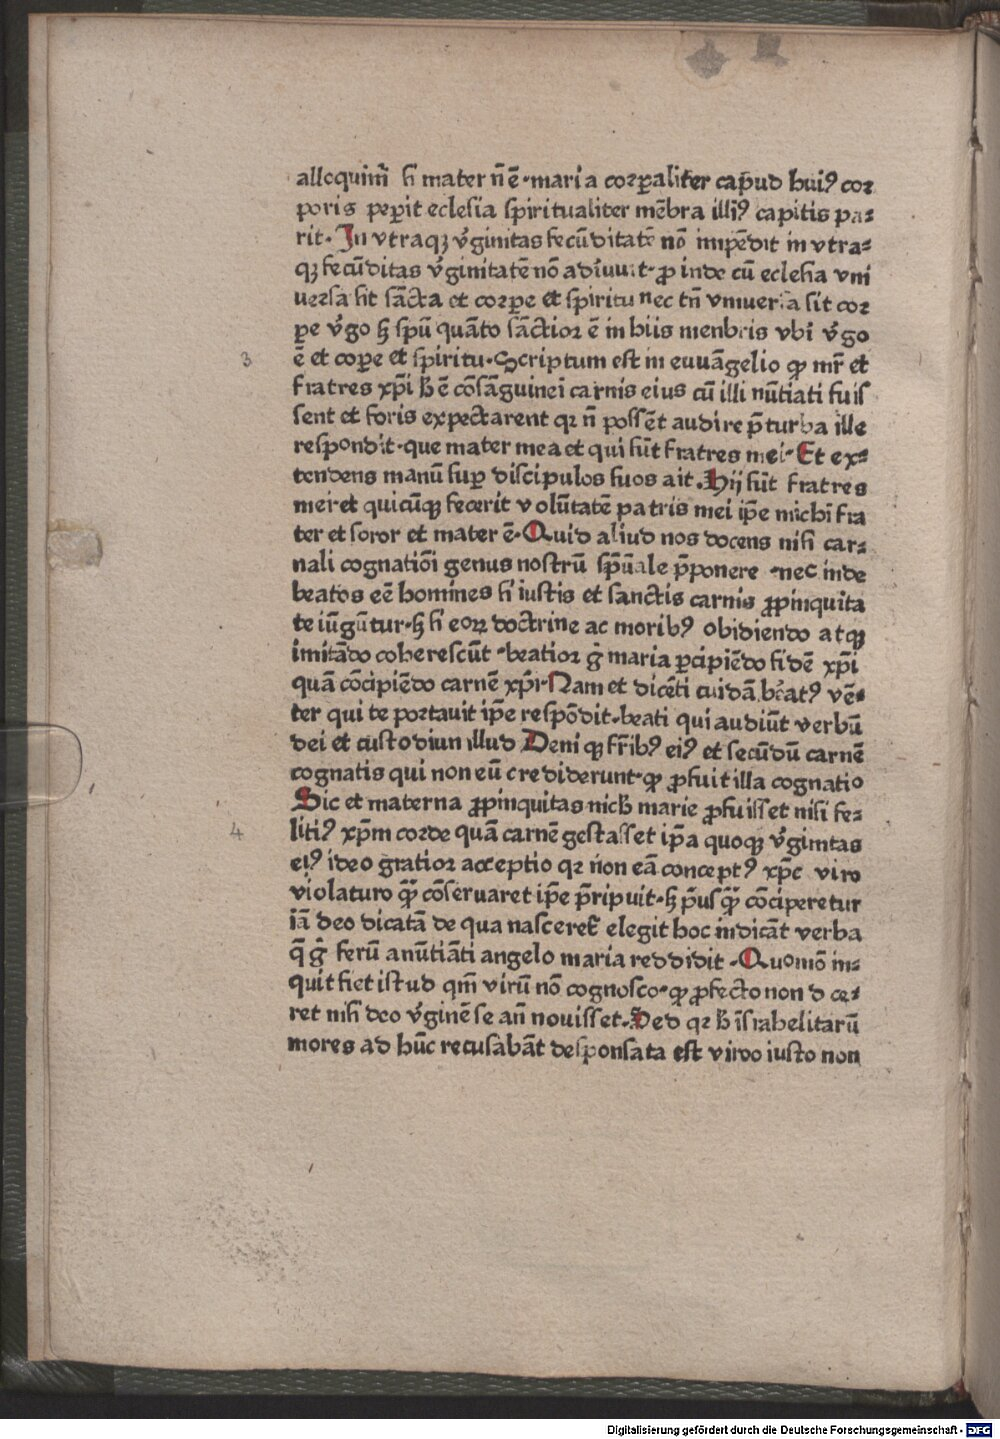 alloquim̃ si mater ñ ē·maria corꝑaliter cap̃ud huiꝰ cor
poris peꝑit eclesia spiritualiter mēbra illiꝰ capitis pa⸗
rit· In vtraqꝫ v̓ginitas fecūditatē nō impēdit in vtra⸗
qꝫ fecūditas v̓ginitatē nō adiuuit·ꝓ inde cū eclesia vni
uersa sit sācta et corꝑe et spiritu nec tñ vniuersa sit cor
ꝑe v̓go sꝫ spũ quāto sāctior ē in hiis menbris vbi v̓go
ē et coꝑe et spiritu·Scriptum est in euuāgelio ꝙ mr̃ et
fratres xp̃i h̄ ē cōsāguinei carnis eius cū illi nūtiati fuis
sent et foris expectarent qꝛ ñ possēt audire p̄ turba ille
respondit·que mater mea et qui sūt fratres mei·Et ex⸗
tendens manū suꝑ discipulos suos ait.Hij sūt fratres
mei et quicūqꝫ fecerit volūtatē patris mei ip̃e michi fra
ter et soror et mater ē·Quid aliud nos docens nisi car⸗
nali cognatiōi genus nostrū sp̃uale p̄ponere ·nec inde
beatos eē homines si iustis et sanctis carnis ꝓpinquita
te iūgūtur·sꝫ si eoꝝ doctrine ac moribꝰ obidiendo atqꝫ
imitādo coherescūt ·beatior g̊ maria ꝑcipiēdo fidē xp̃i
quā cōcipiēdo carnē xp̃i·Nam et dicēti cuidā beatꝰ vē⸗
ter qui te portauit ip̃e respōdit·beati qui audiūt verbū
dei et custodiun illud Deni qꝫ fr̃ibꝰ eiꝰ et secūdū carnē
cognatis qui non eū crediderunt·ꝙ ꝓfuit illa cognatio
Sic et materna ꝓpinquitas nich̄ marie ꝓfuisset nisi fe⸗
litiꝰ xp̃m corde quā carnē gestasset ip̃a quoqꝫ v̓ginitas
eiꝰ ideo gratior acceptio qꝛ non eā conceptꝰ xp̃c viro
violaturo qꝫ̄ cōseruaret ip̃e p̄ripuit·sꝫ p̄usqꝫ̄ cōciperetur
iā deo dicatā de qua nasceret̃ elegit hoc indicāt verba
q̄ g̊ ferū anūtiāti angelo maria reddidit ·Quomō in⸗
quit fiet istud qm̃ virū nō cognosco·ꝙ ꝓfecto non d ce⸗
ret nisi deo v̓ginē se añ nouisset·Sed qꝛ h̄ israhelitarū
mores ad hūc recusabāt desponsata est viro iusto non
3
4
Digitalisierung gefördert durch die Deutsche Forschungsgemeinschaft - DFG